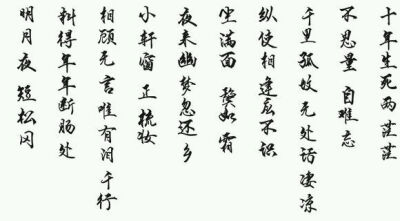 十年生死两茫茫
不思量 自难忘
千里孤坟无处话凄凉
纵使相逢应不识
尘满面 鬓如霜
夜来幽梦忽还乡
小轩窗 正梳妆
相顾无言唯有泪千行
料得年年断肠处
明月夜 短松冈